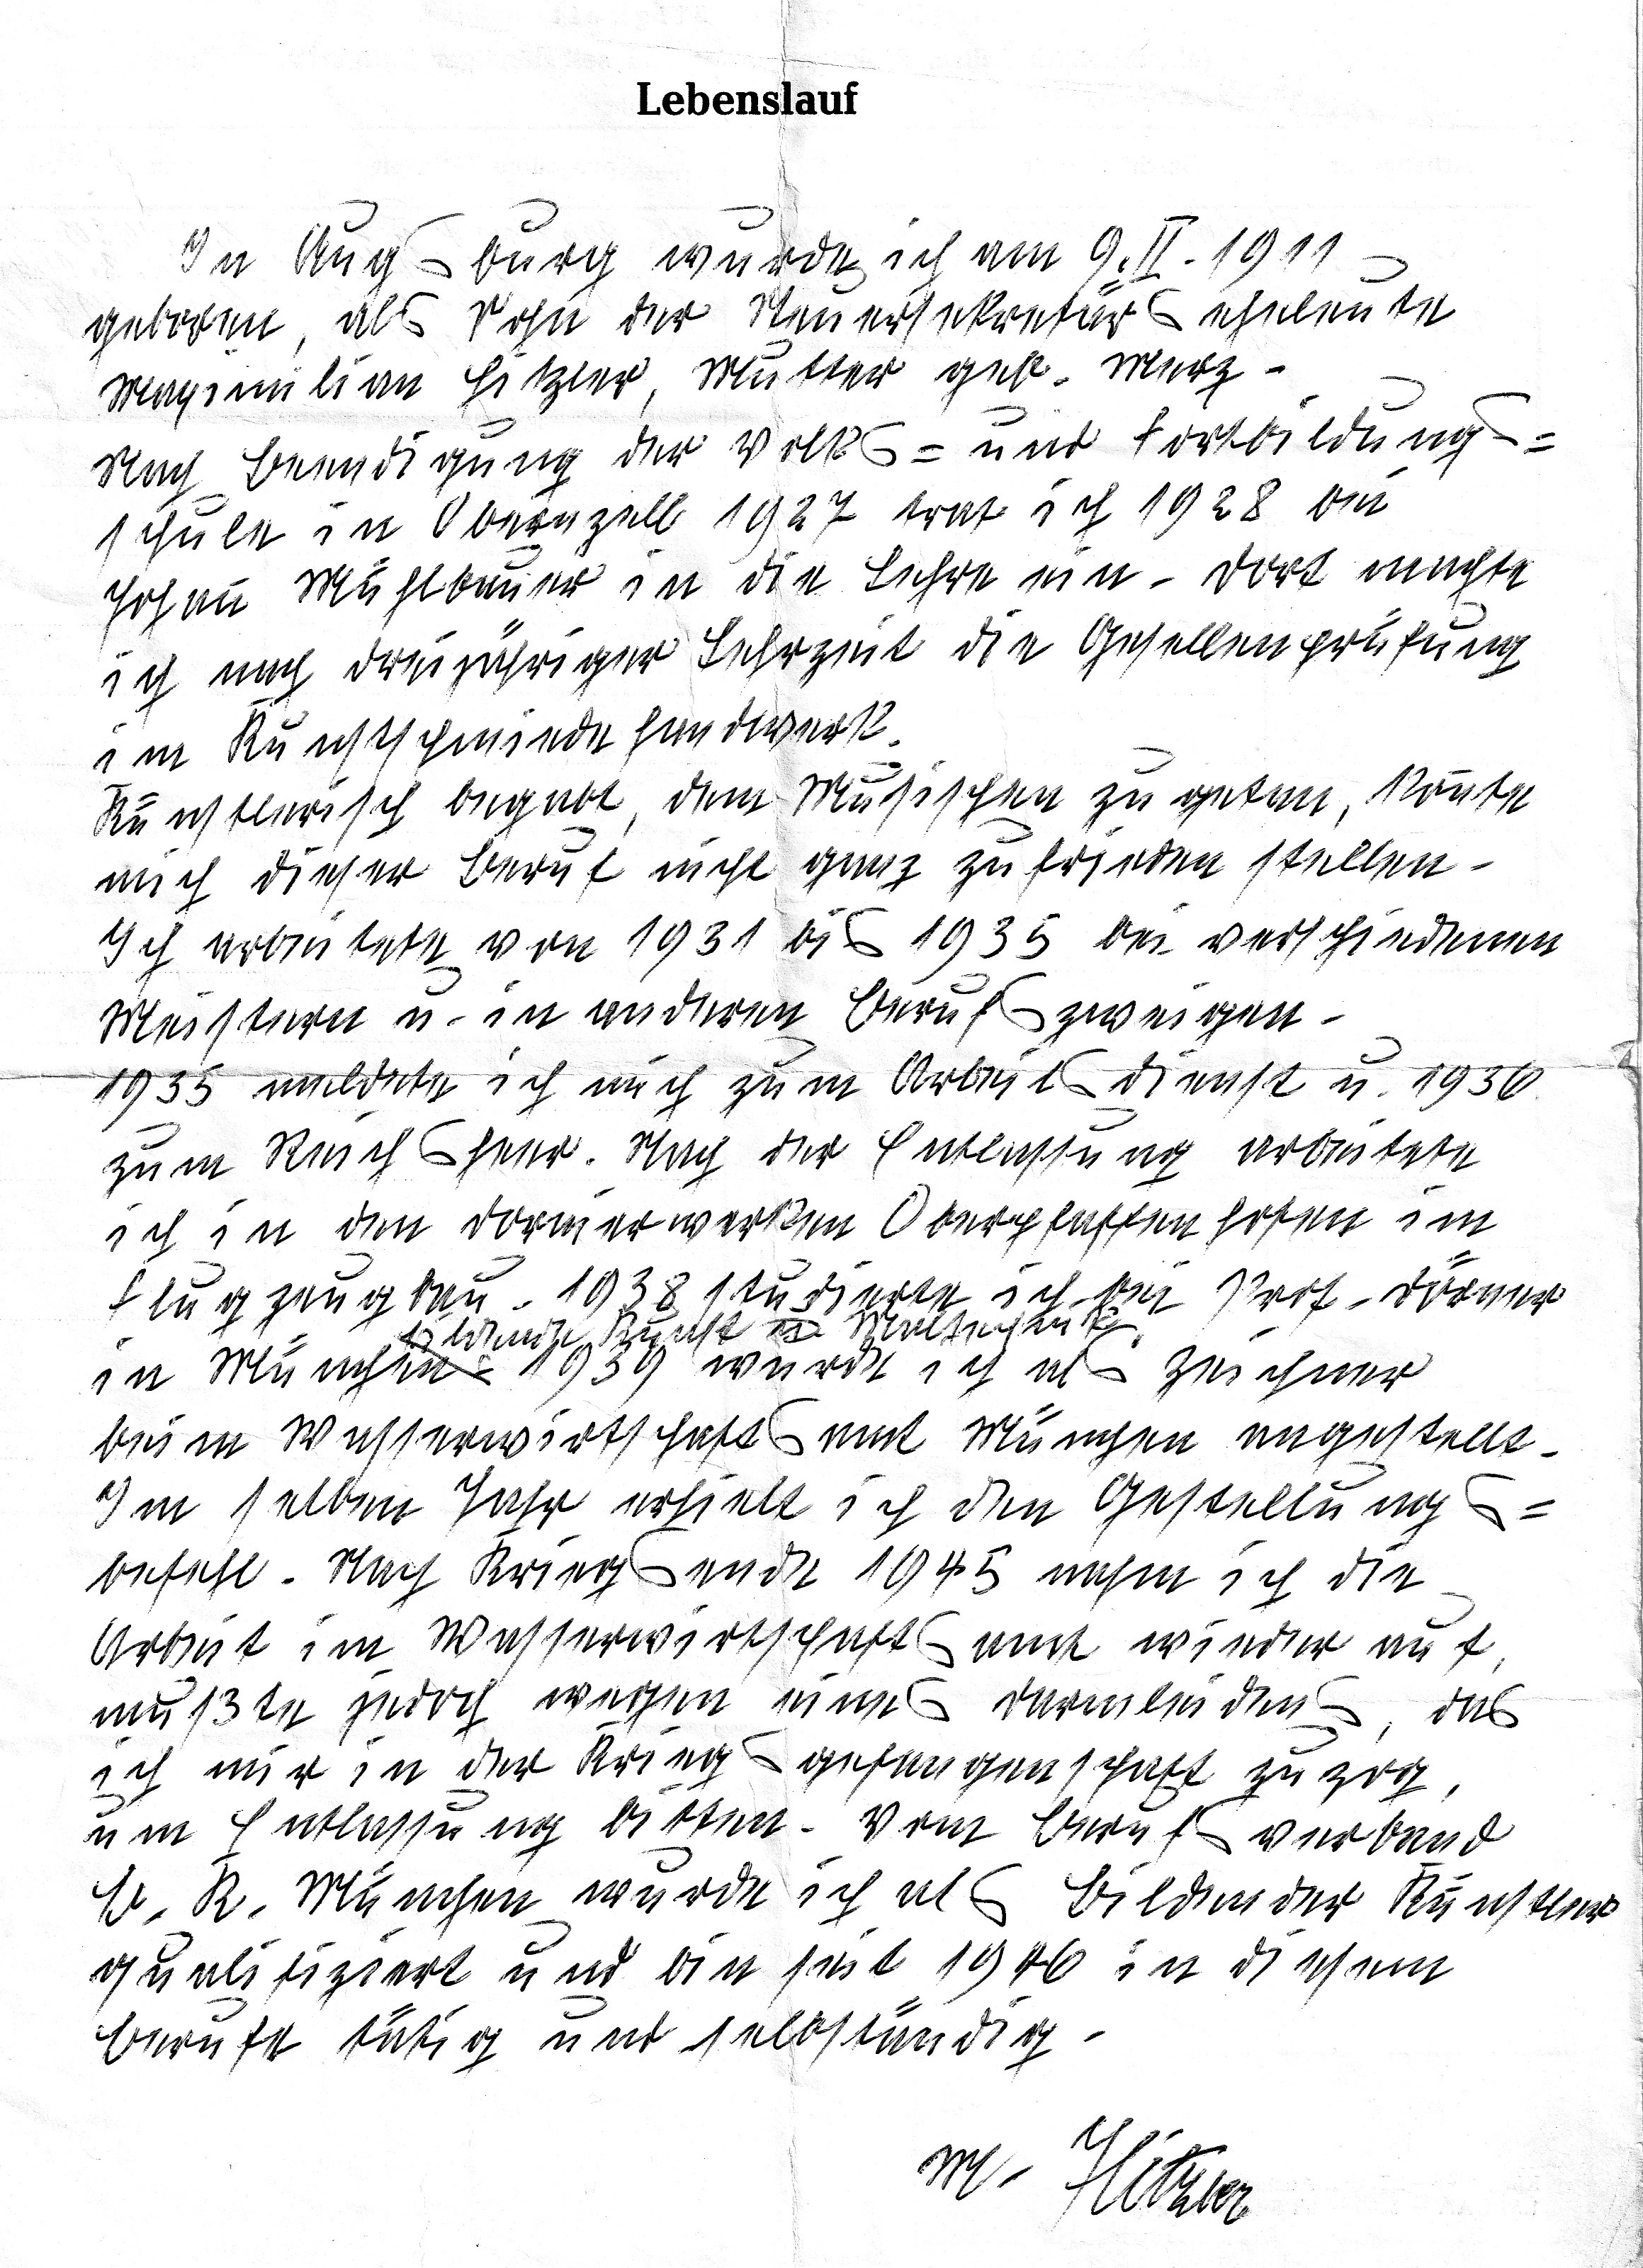 Lebenslauf
In Augsburg wurde ich am 9. II. 1911
geboren, als Sohn der Steuersekretärseheleute
Maximilian Hitzler, Mutter geb. Merz.
Nach Beendigung der Volks= und Fortbildungs=
schule in Obernzell 1927 trat ich 1928 bei
Johau Mühlbauer in die Lehre ein. Dort machte
ich nach dreijähriger Lehrzeit die Gesellenprüfung
im Kunstschmiedehandwerk.
Künstlerisch begabt, dem Musischen zugetan, koñte
mich dieser Beruf nicht ganz zufrieden stellen.
Ich arbeitete von 1931 bis 1935 bei verschiedenen
Meistern u. in anderen Berufszweigen.
1935 meldete ich mich zum Arbeitsdienst u. 1936
zum Reichsheer. Nach der Entlassung arbeitete
ich in den Dornierwerken Oberpfaffenhofen im
Flugzeugbau. 1938 studierte ich bei Prof. Dörner
bildende Kunst u. Maltechnik.
in München. 1939 wurde ich als Zeichner
beim Wasserwirtschaftsamt München angestellt.
Im selben Jahr erhielt ich den Gestellungs=
befehl. Nach Kriegsende 1945 nahm ich die
Arbeit im Wasserwirtschaftsamt wieder auf,
mußte jedoch wegen eines Darmleidens, das
ich mir in der Kriegsgefangenschaft zuzog,
um Entlassung bitten. Vom Berufsverband
b. K. München wurde ich als Bildender Künstler
qualifiziert und bin seit 1946 in diesem
Berufe tätig und selbständig.
M. Hitzler